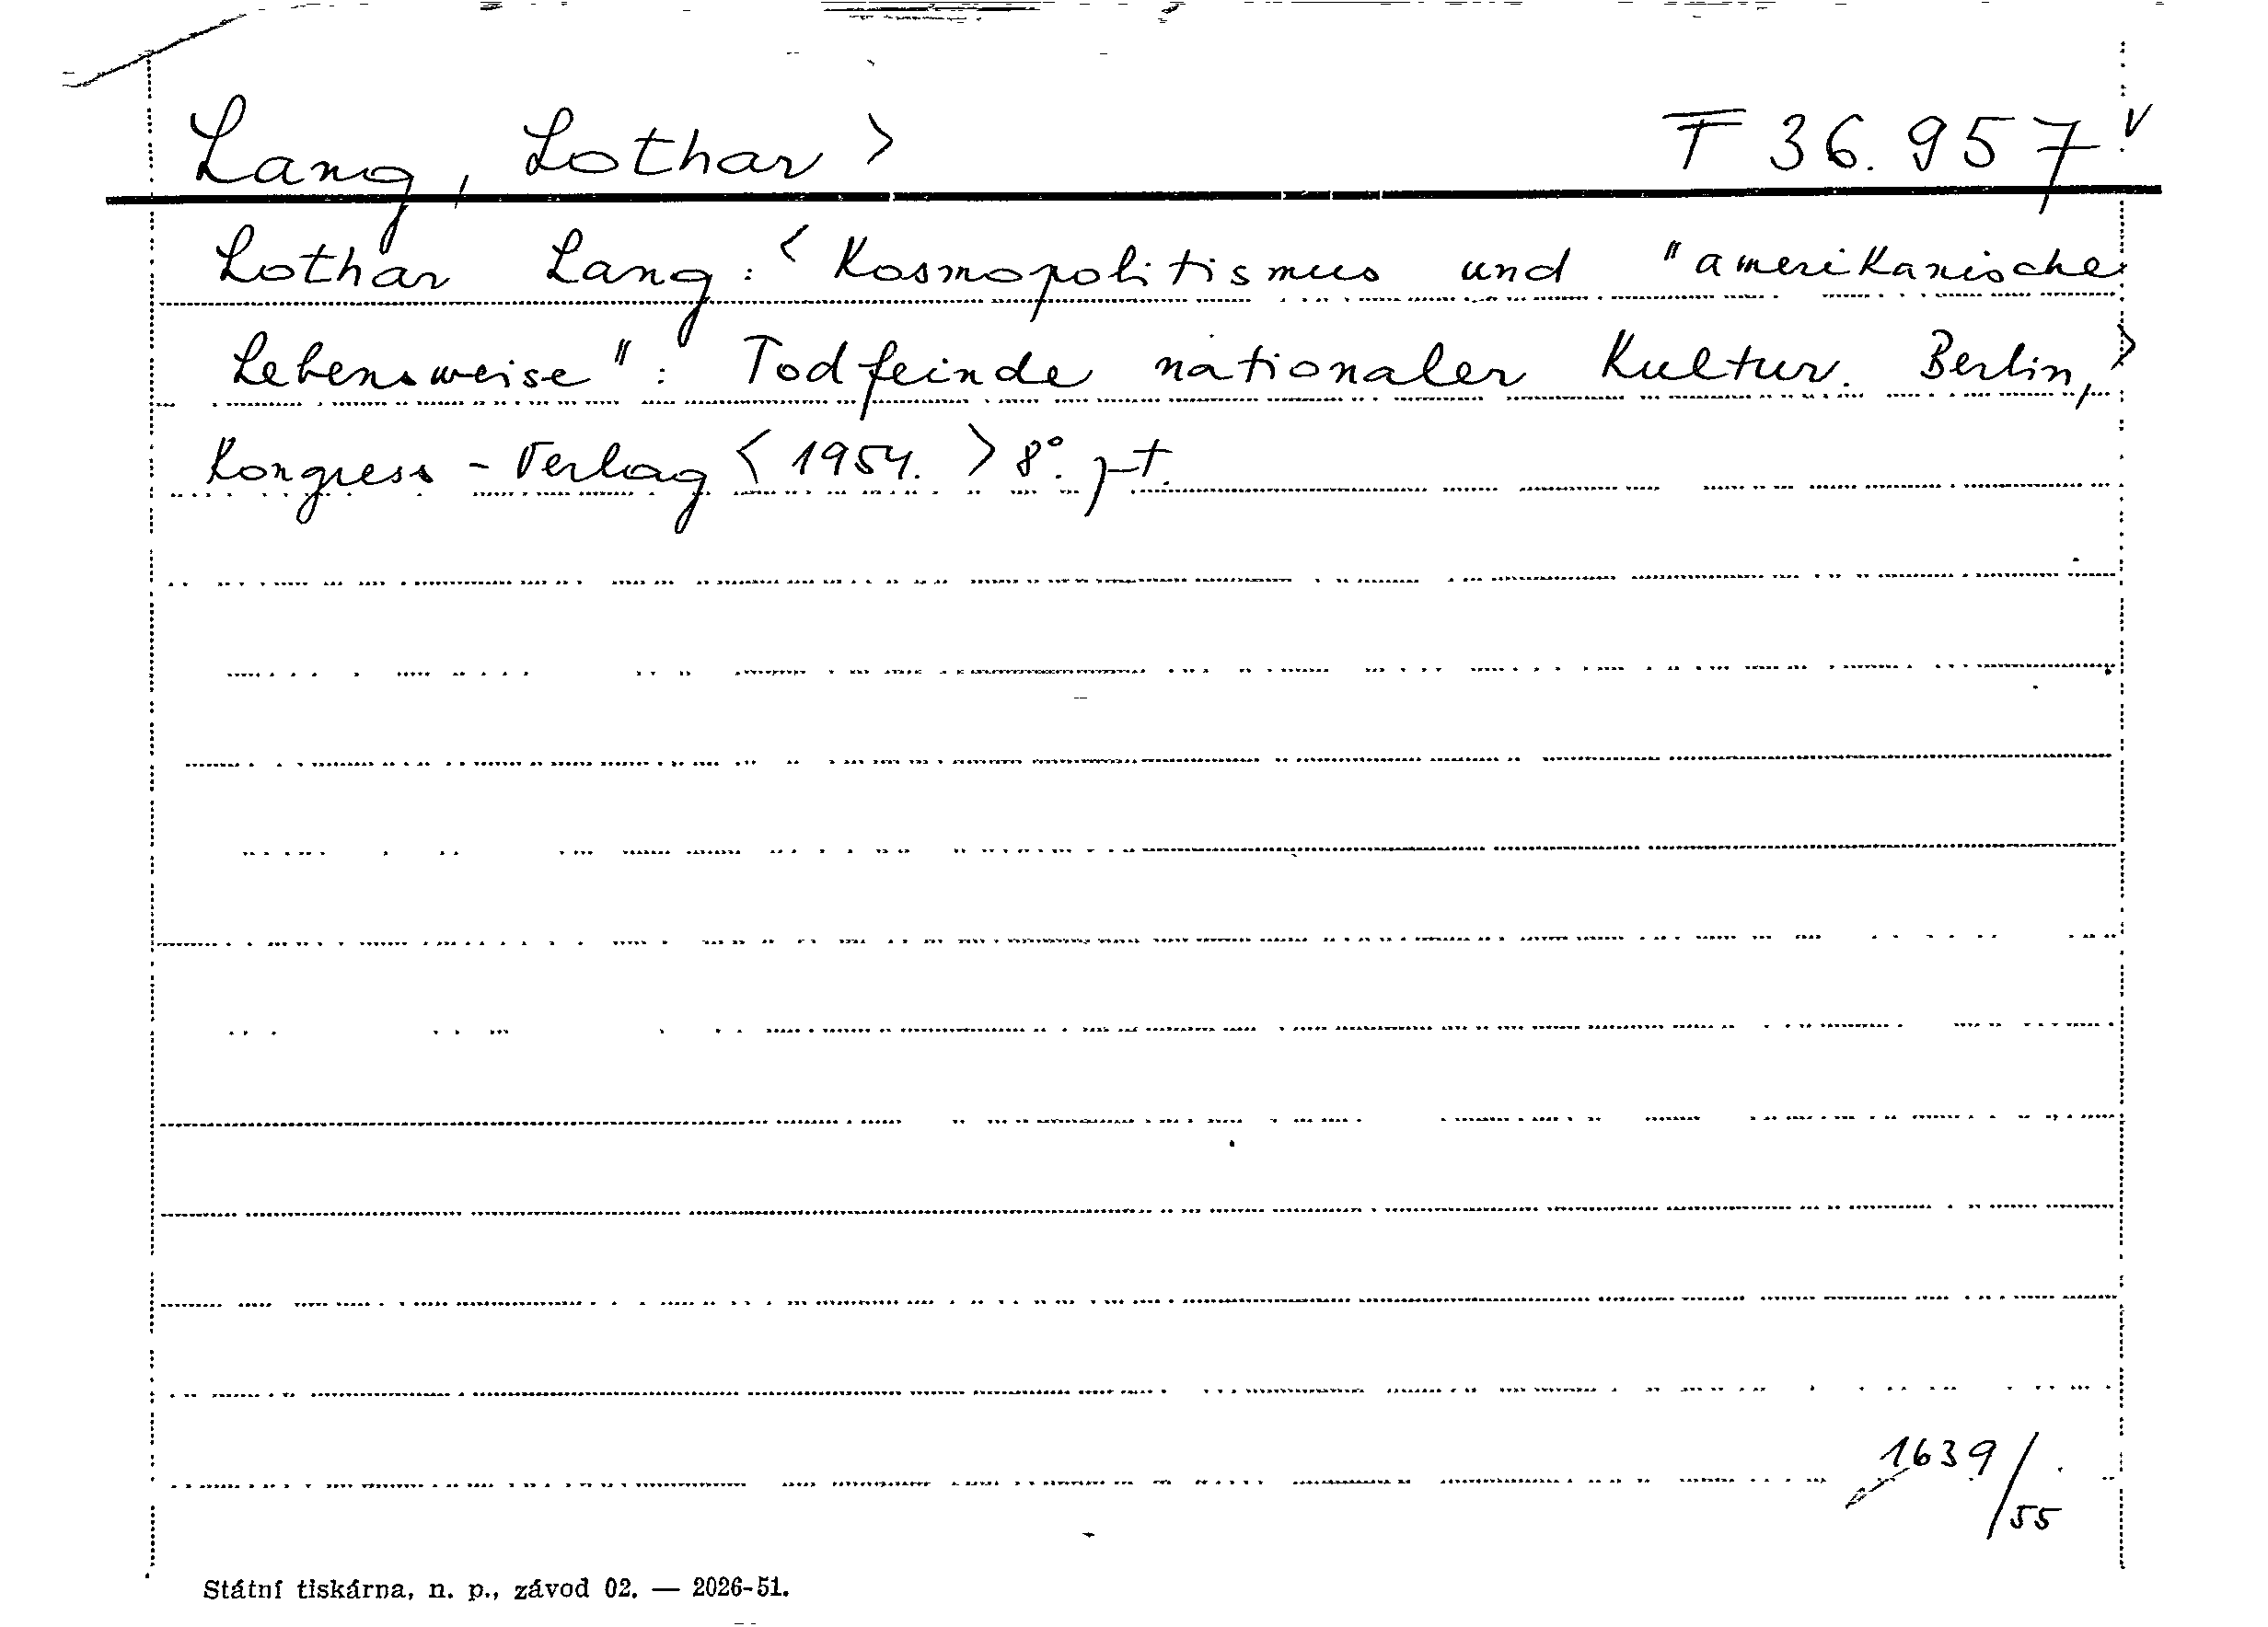 Lang, Lothar > F 36.957 v
Lothar Lang: < Kosmopolitismus und "amerikanische
Lebensweise": Todfeinde nationaler Kultur. Berlin, >
Kongress-Verlag < 1954. > 8°. pt.
1639/55
Státní tiskárna, n. p., závod 02. — 2026-51.